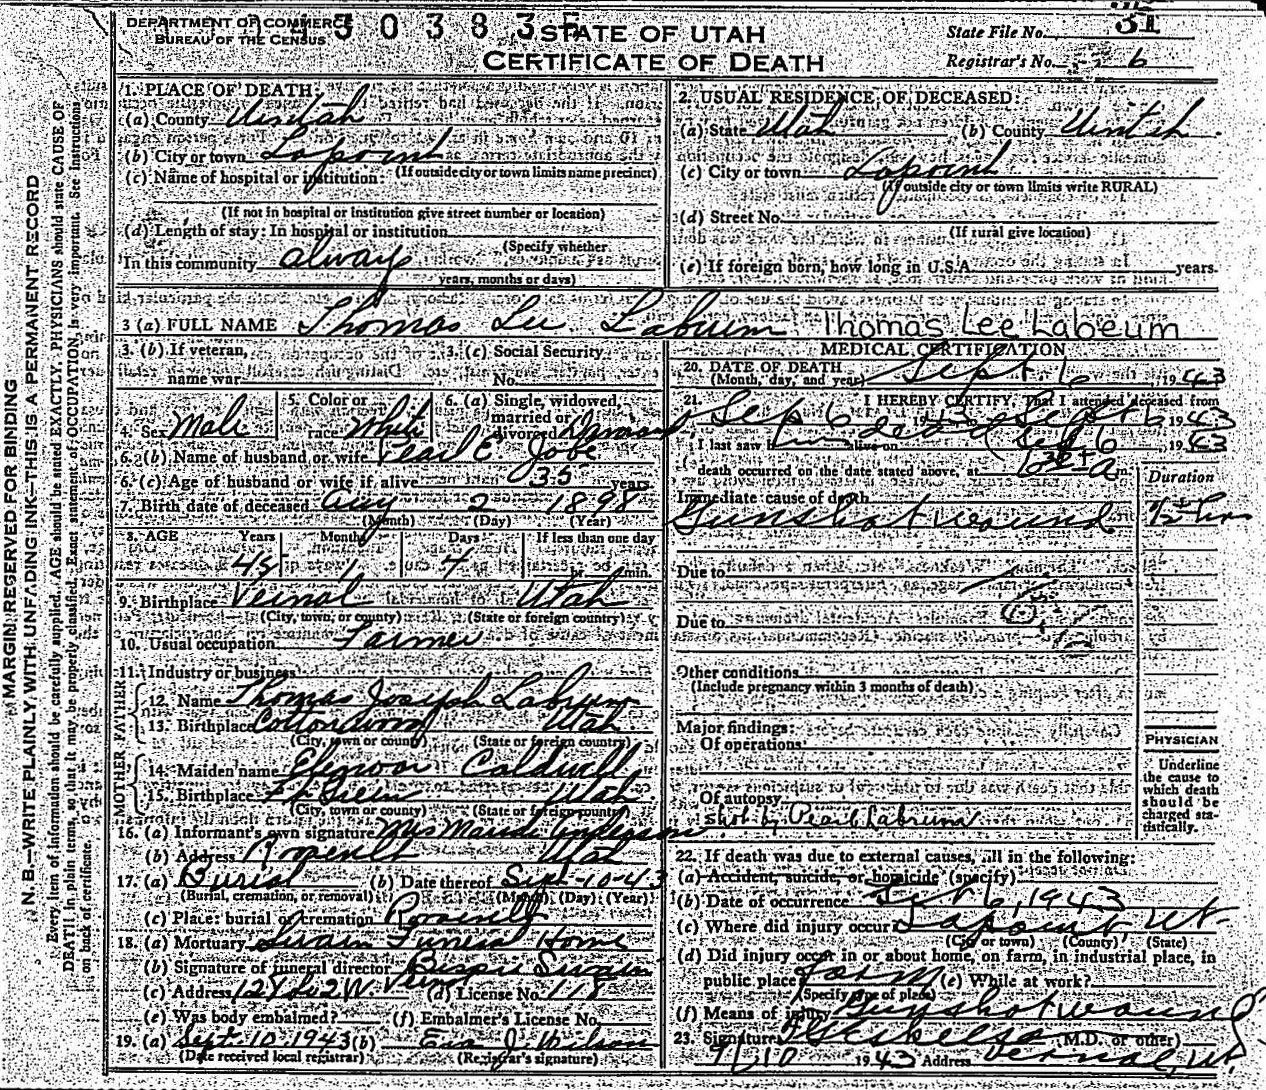 DEPARTMENT OF COMMERCE
BUREAU OF THE CENSUS
STATE OF UTAH
CERTIFICATE OF DEATH
State File No. 31
Registrar's No. 6
MARGIN RESERVED FOR BINDING
N. B.—WRITE PLAINLY, WITH UNFADING INK—THIS IS A PERMANENT RECORD
Every item of information should be carefully supplied. AGE should be stated EXACTLY. PHYSICIANS should state CAUSE OF
DEATH in plain terms, so that it may be properly classified. Exact statement of OCCUPATION is very important. See instructions
on back of certificate.
1. PLACE OF DEATH:
(a) County Uintah
(b) City or town Lapoint
(If outside city or town limits name precinct)
(c) Name of hospital or institution:
(If not in hospital or institution give street number or location)
(d) Length of stay: In hospital or institution
(Specify whether
In this community always
years, months or days)
2. USUAL RESIDENCE OF DECEASED:
(a) State Utah (b) County Uintah
(c) City or town Lapoint
(If outside city or town limits write RURAL)
(d) Street No.
(If rural give location)
(e) If foreign born, how long in U.S.A. years.
3 (a) FULL NAME Thomas Lee Labrum Thomas Lee Labeum
3. (b) If veteran, name war
3. (c) Social Security No.
4. Sex Male
5. Color or race White
6. (a) Single, widowed, married or divorced
6. (b) Name of husband or wife Pearl E. Jobe
6. (c) Age of husband or wife if alive 35 years
7. Birth date of deceased Aug 2 1898
(Month) (Day) (Year)
8. AGE Years Months Days If less than one day
45 1 4 hr. min.
9. Birthplace Vernal Utah
(City, town, or county) (State or foreign country)
10. Usual occupation Farmer
11. Industry or business
FATHER
12. Name Thomas Joseph Labrum
13. Birthplace Cottonwood Utah
(City, town or county) (State or foreign country)
MOTHER
14. Maiden name Caldwell
15. Birthplace Utah
(City, town or county) (State or foreign country)
16. (a) Informant's own signature Mrs Maude Anderson
(b) Address Roosevelt Utah
17. (a) Burial (b) Date thereof Sept-10-43
(Burial, cremation, or removal) (Month) (Day) (Year)
(c) Place: burial or cremation Roosevelt
18. (a) Mortuary Swain Funeral Home
(b) Signature of funeral director Swain
(c) Address (d) License No. 118
(e) Was body embalmed? (f) Embalmer's License No.
19. (a) Sept. 10, 1943 (b) Eva J. Wilson
(Date received local registrar) (Registrar's signature)
MEDICAL CERTIFICATION
20. DATE OF DEATH Sept 6, 1943
(Month, day, and year)
21. I HEREBY CERTIFY, That I attended deceased from
Sep 6 1943 Sept 6 1943
I last saw him alive on dead Sept 6, 1943
death occurred on the date stated above, at m.
Duration
Immediate cause of death
Gunshot wound ½ hrs
Due to
Due to
Other conditions
(Include pregnancy within 3 months of death)
Major findings:
Of operations
Of autopsy
Shot by Pearl Labrum
PHYSICIAN
Underline
the cause to
which death
should be
charged sta-
tistically.
22. If death was due to external causes, fill in the following:
(a) Accident, suicide, or homicide (specify)
(b) Date of occurrence Sept 6, 1943
(c) Where did injury occur? Lapoint Ut.
(City or town) (County) (State)
(d) Did injury occur in or about home, on farm, in industrial place, in
public place? farm (e) While at work?
(Specify type of place)
(f) Means of injury Gunshot wound
23. Signature (M.D. or other)
1943 Address Vernal, Ut.